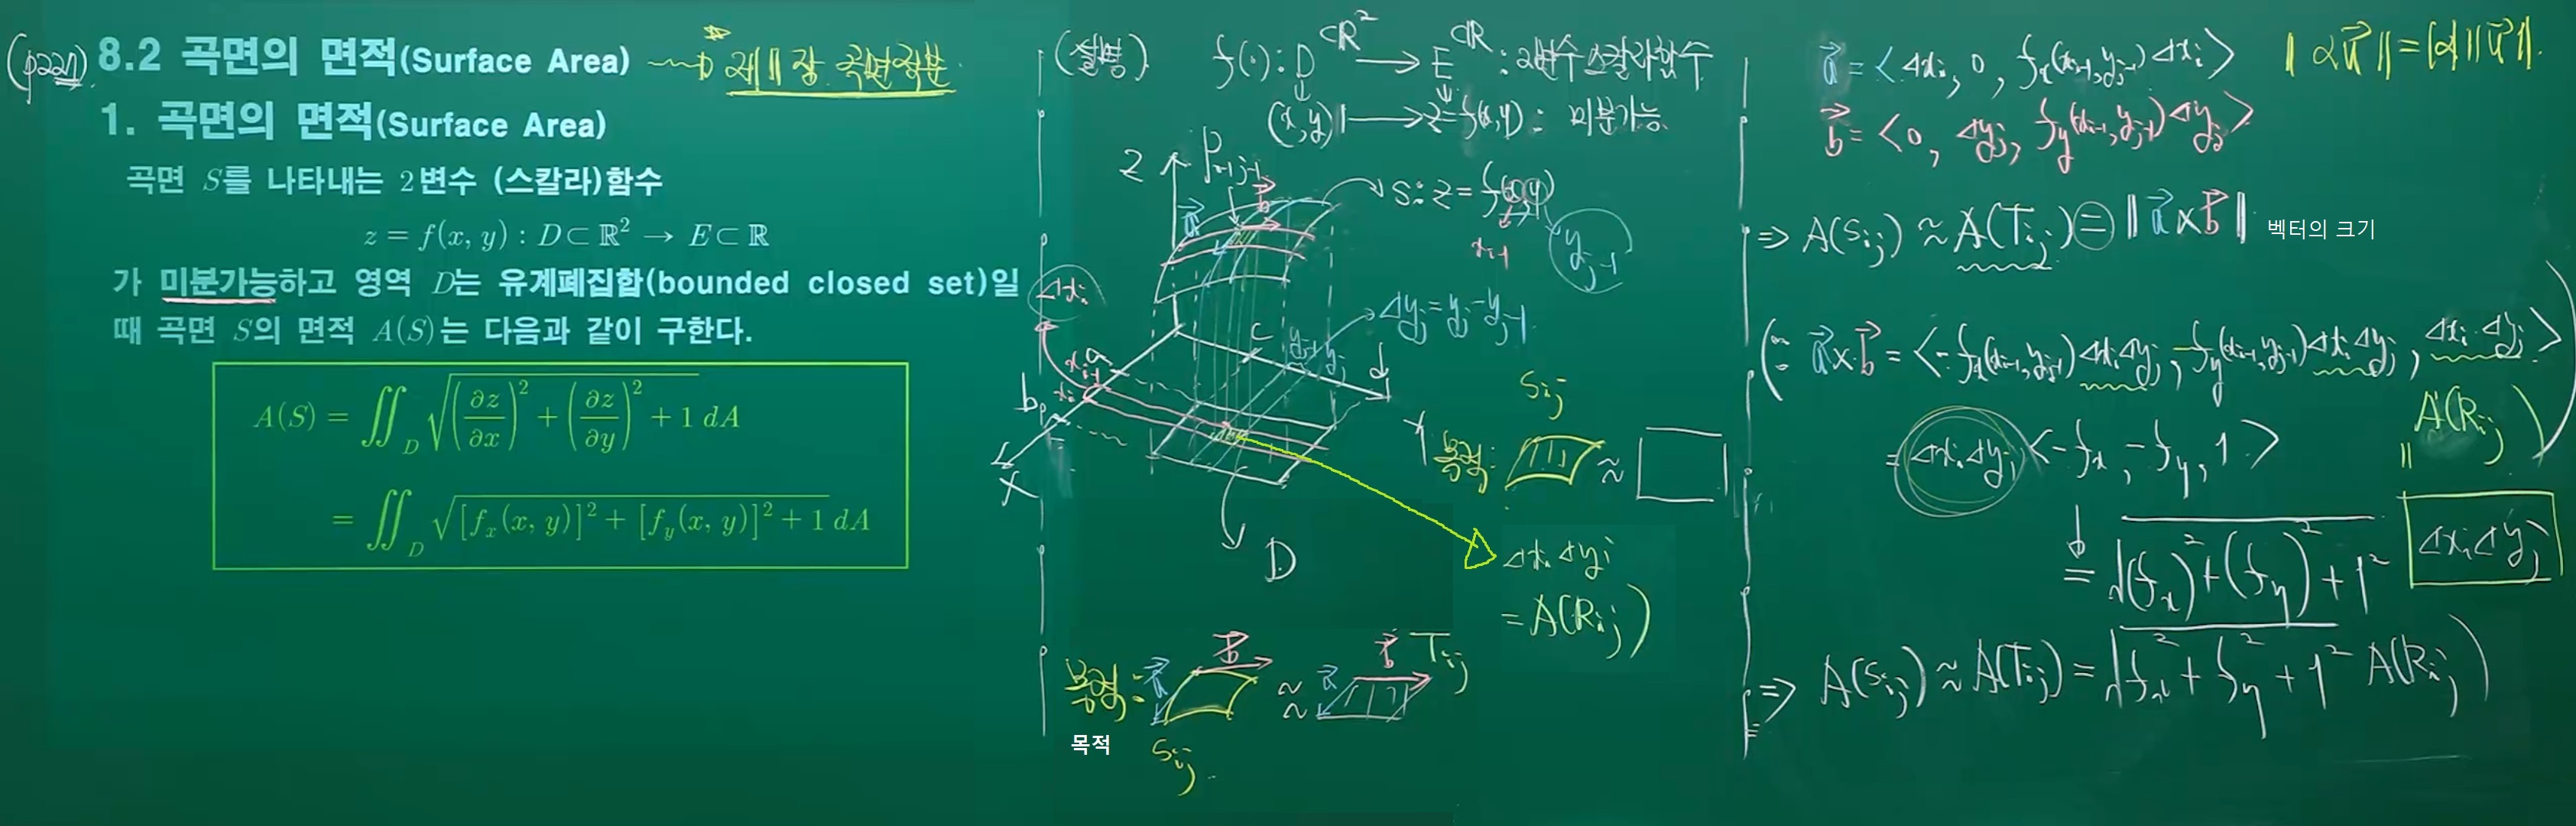 (p221)
8.2 곡면의 면적(Surface Area) → 제11장 곡면적분
1. 곡면의 면적(Surface Area)
곡면 S를 나타내는 2변수 (스칼라)함수
z = f(x, y) : D⊂ℝ² → E⊂ℝ
가 미분가능하고 영역 D는 유계폐집합(bounded closed set)일
때 곡면 S의 면적 A(S)는 다음과 같이 구한다.
A(S) = ∬_D √((∂z/∂x)² + (∂z/∂y)² + 1) dA
= ∬_D √([f_x(x, y)]² + [f_y(x, y)]² + 1) dA
(설명) f(·) : D ⊂ℝ² → E ⊂ℝ : 2변수 스칼라함수
(x,y) → z=f(x,y) : 미분가능
z
P_{i-1,j-1}
a⃗
b⃗
S : z = f(x,y)
x_{i-1}
y_{j-1}
Δx_i
Δy_j = y_j - y_{j-1}
a
x_{i-1}
x_i
b
c
y_{j-1} y_j
d
x
y
D
S_{ij}
목적: ≈
Δx_i Δy_j
= A(R_{ij})
목적: a⃗ b⃗ ≈ a⃗ b⃗ T_{ij}
목적
S_{ij}
a⃗ = <Δx_i, 0, f_x(x_{i-1}, y_{j-1})Δx_i>
‖αu⃗‖ = |α|‖u⃗‖.
b⃗ = <0, Δy_j, f_y(x_{i-1}, y_{j-1})Δy_j>
⇒ A(S_{ij}) ≈ A(T_{ij}) = ‖a⃗ × b⃗‖ 벡터의 크기
(∵ a⃗ × b⃗ = <-f_x(x_{i-1}, y_{j-1})Δx_iΔy_j, -f_y(x_{i-1}, y_{j-1})Δx_iΔy_j, Δx_iΔy_j>
= Δx_iΔy_j <-f_x, -f_y, 1>
A(R_{ij})
‖
Δx_iΔy_j
= √((f_x)² + (f_y)² + 1²)
⇒ A(S_{ij}) ≈ A(T_{ij}) = √(f_x² + f_y² + 1²) A(R_{ij})